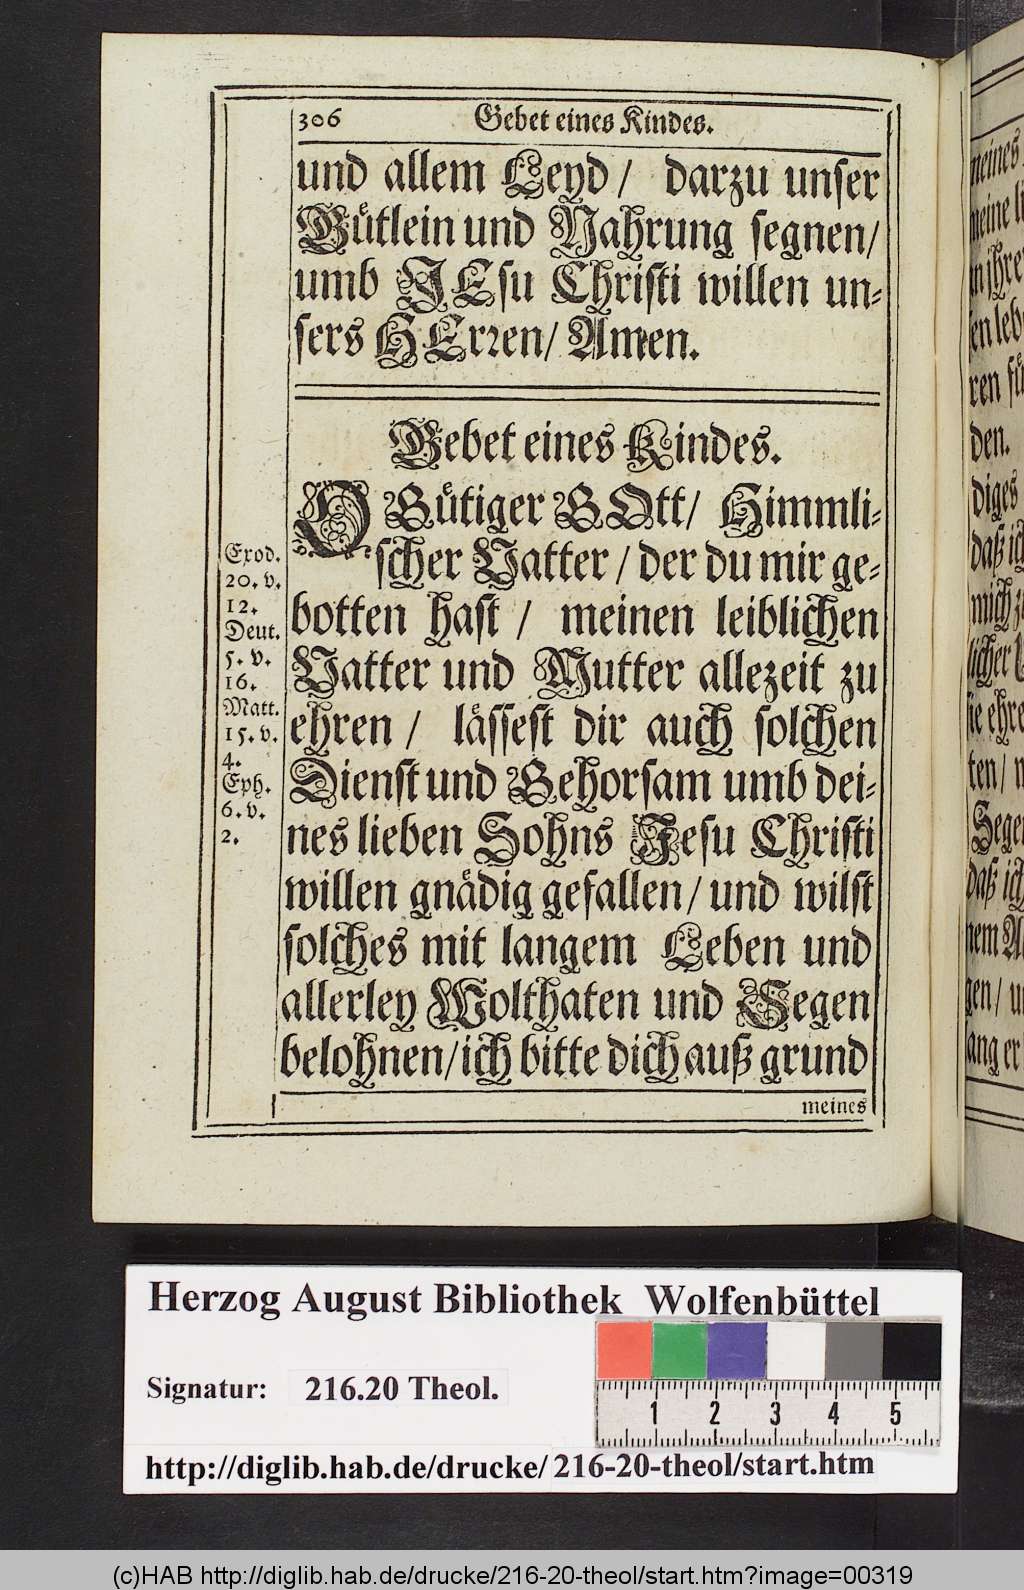 306 Gebet eines Kindes.
und allem Leyd / darzu unser
Gütlein und Nahrung segnen/
umb JEsu Christi willen un-
sers HErren/ Amen.
Gebet eines Kindes.
O Gütiger GOtt/ Himmli-
scher Vatter / der du mir ge-
botten hast / meinen leiblichen
Vatter und Mutter allezeit zu
ehren / lässest dir auch solchen
Dienst und Gehorsam umb dei-
nes lieben Sohns Jesu Christi
willen gnädig gefallen / und wilst
solches mit langem Leben und
allerley Wolthaten und Segen
belohnen/ ich bitte dich auß grund
meines
Exod.
20. v.
12.
Deut.
5. v.
16.
Matt.
15. v.
4.
Eph.
6. v.
2.
meines
meine
ihre
ren
den.
diges
daß
mich
licher
sie ehre
ten/
daß ich
nem
gen/
Herzog August Bibliothek Wolfenbüttel
Signatur: 216.20 Theol.
1 2 3 4 5
http://diglib.hab.de/drucke/216-20-theol/start.htm
(c)HAB http://diglib.hab.de/drucke/216-20-theol/start.htm?image=00319